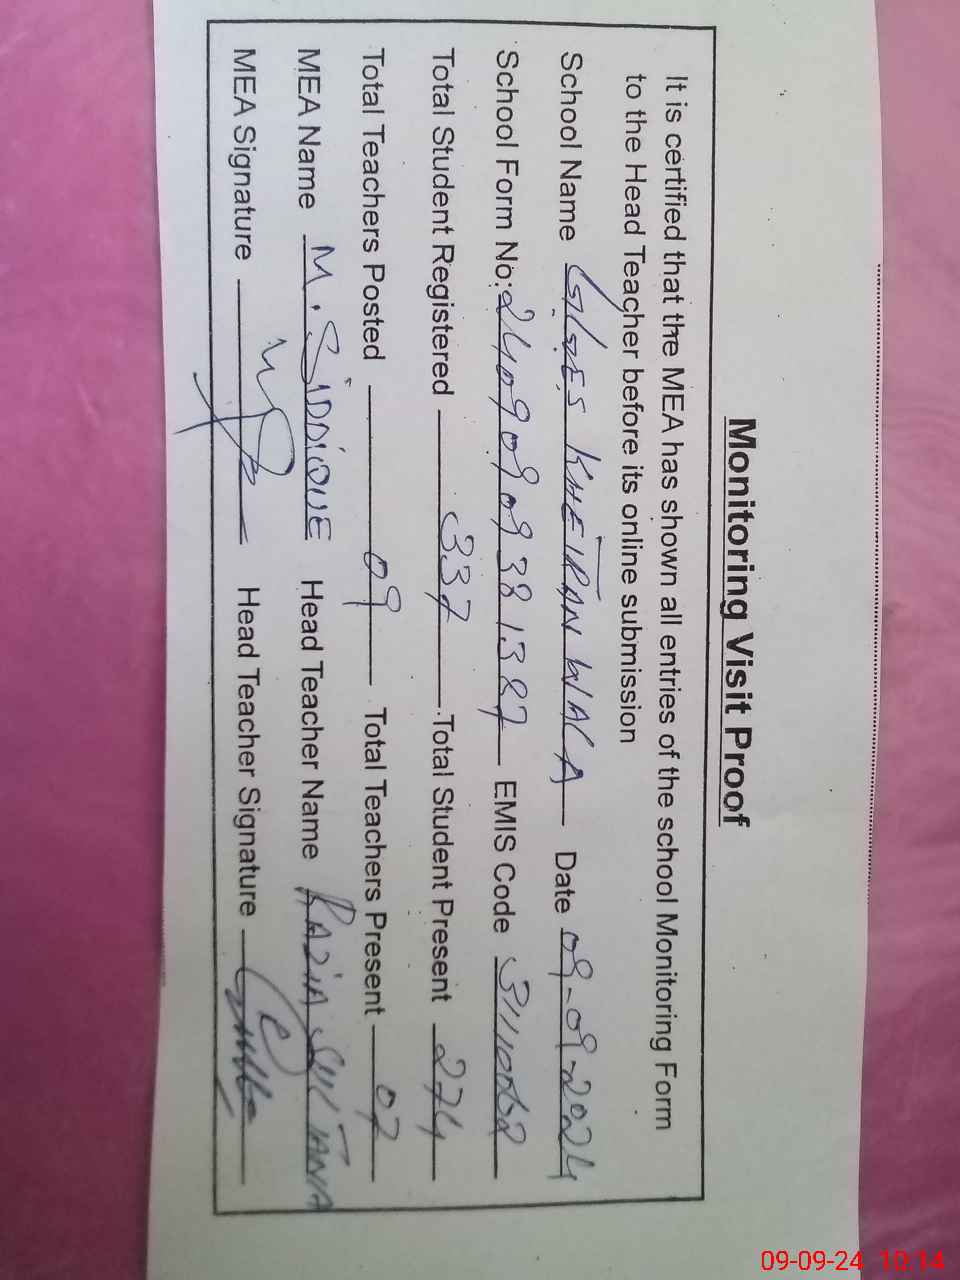 Monitoring Visit Proof
It is certified that the MEA has shown all entries of the school Monitoring Form
to the Head Teacher before its online submission
School Name GGES KHETRANWALA Date 09-09-2024
School Form No: 24090909381387 EMIS Code
Total Student Registered 337 Total Student Present 274
Total Teachers Posted 09 Total Teachers Present 07
MEA Name M. SIDDIQUE Head Teacher Name RAZIA SULTANA
MEA Signature Head Teacher Signature
09-09-24 10:14